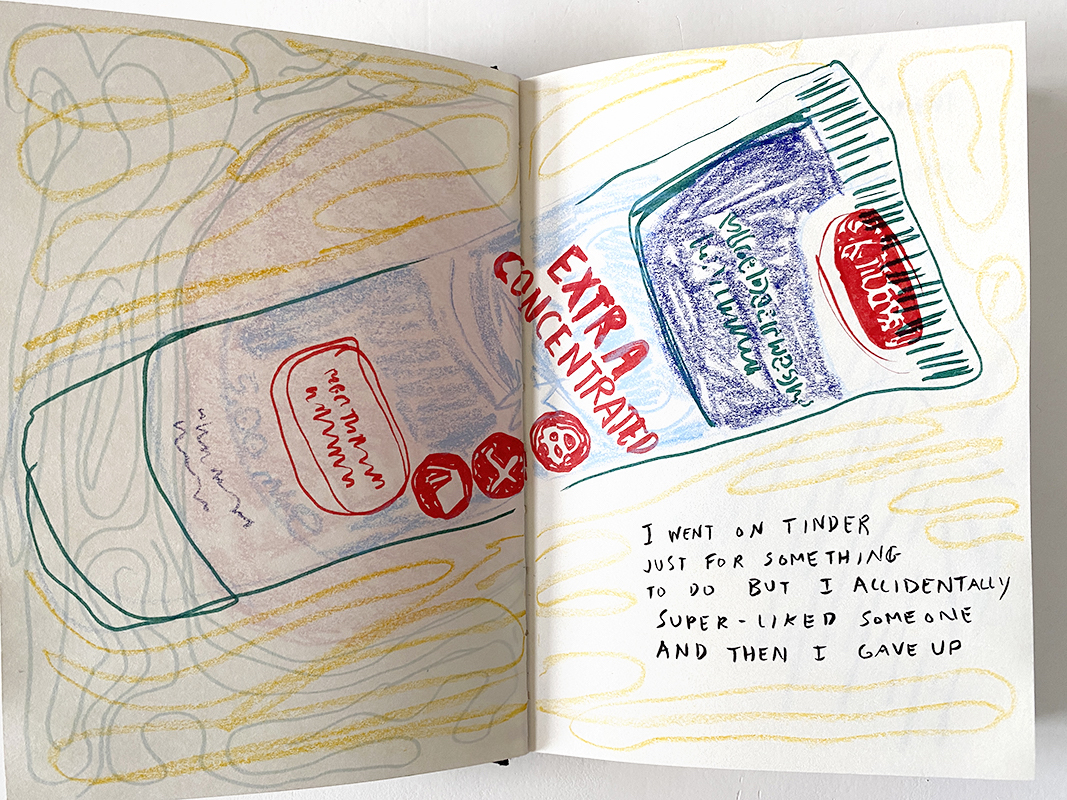 EXTRA
CONCENTRATED
I WENT ON TINDER
JUST FOR SOMETHING
TO DO BUT I ALLIDENTALLY
SUPER-LIKED SOMEONE
AND THEN I GAVE UP